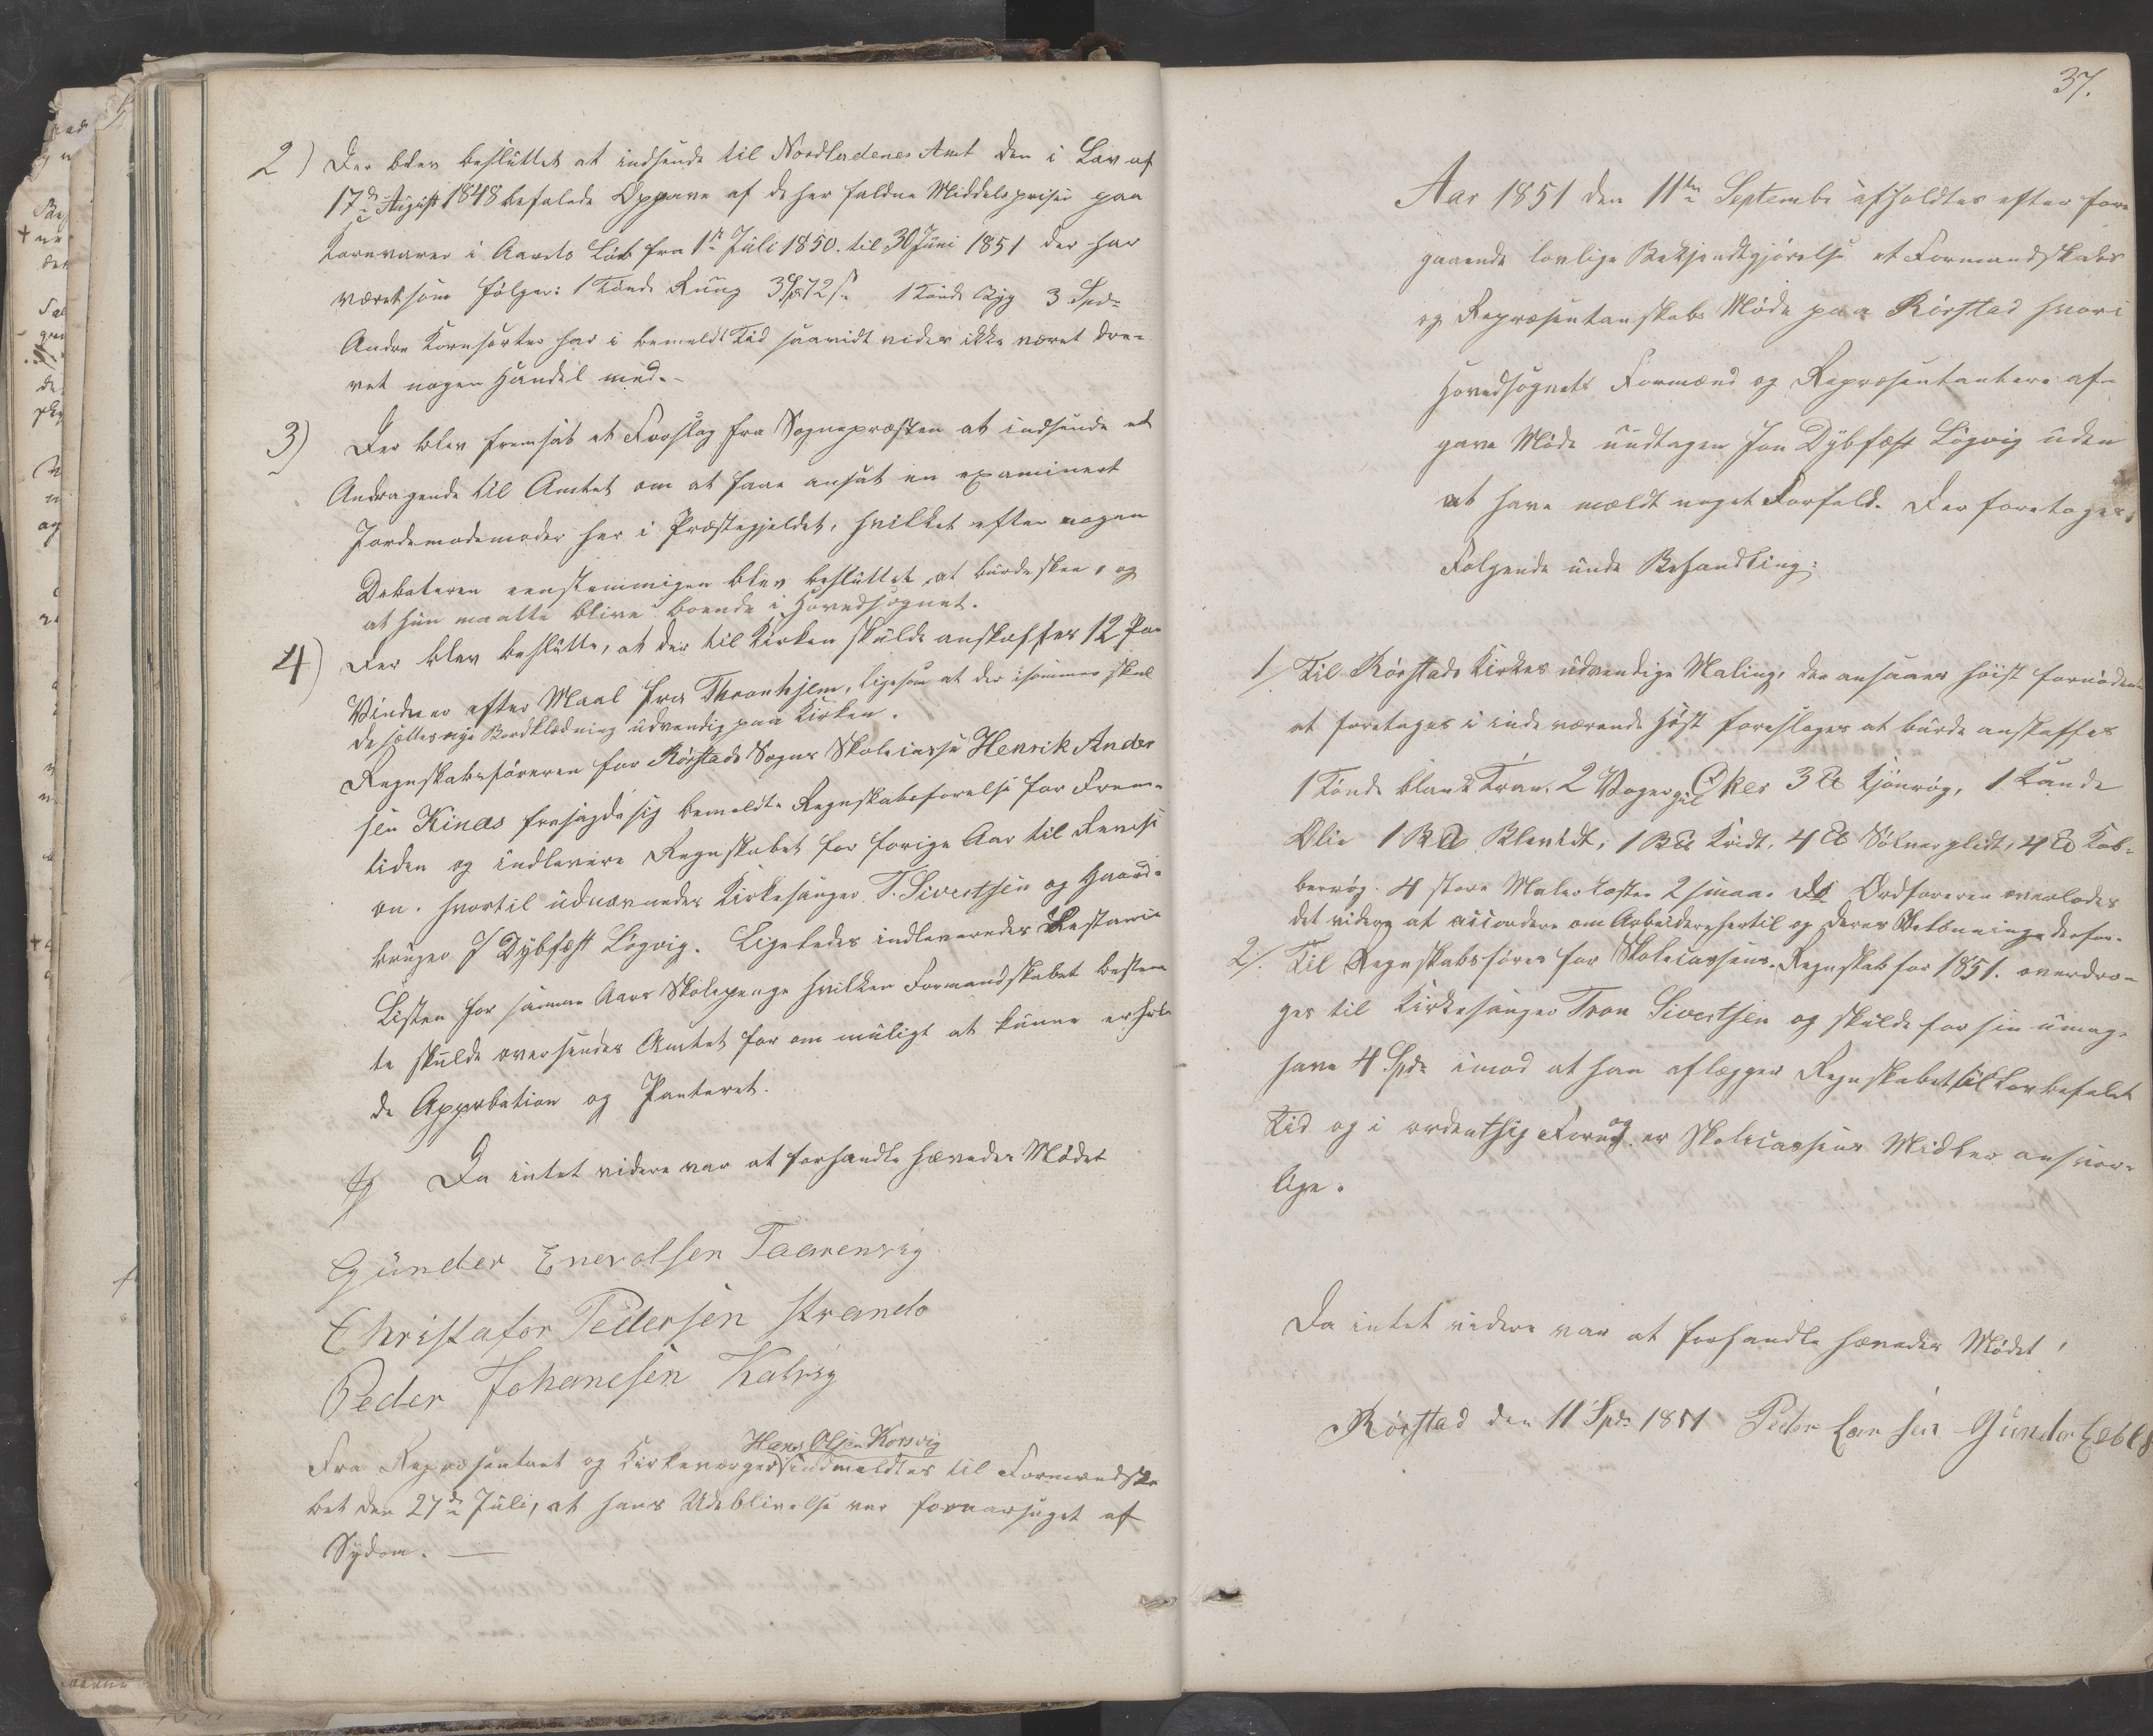 2) Der blev besluttet at indsende til Nordlandenes Amt den i Lov af
17de August 1848 befalede Opgave af de her faldne Middelspriser paa
Kornvarer i Aarets Løb fra 1ste Juli 1850. til 30 Juni 1851 der har
været som følger: 1 Tønde Rug 3 Spd 72 s. 1 Tønde Byg 3 Spd.
Andre Kornsorter har i bemeldt Tid saavidt vides ikke været dre-
vet nogen Handel med.-
3) Der blev fremsat et Forslag fra Sognepræsten at indsende et
Andragende til Amtet om at faae ansat en examineret
Jordemodemoder her i Præstegjeldet, hvilket efter nogen
Debateren eenstemmigen blev besluttet at burde skee, og
at hun maatte blive boende i Hovedsognet.
4) Der blev beslutte, at der til Kirken skulde anskaffes 12 Par
Vinduer efter Maal fra Thronhjem, ligesom at der isommer skul
de sættes nye Bordklædning udvendig paa Kirken.
Regnskabsføreren for Rørstads Sogns Skolecasse Henrik Ander
sen Kines frasagde sig bemeldte Regnskabsførelse for Frem-
tiden og indlevere Regnskabet for forige Aar til Revisi
on. hvortil udnævnedes Kirkesanger T. Sivertsen og Gaard-
bruger J Dybfæst Løgvig. Ligeledes indleveredes Restance
Listen for samme Aars Skolepenge hvilken Formandskabet bestem
te skulde oversendes Amtet for om muligt at kunne erhol
de Approbation og Panteret.
Da intet videre var at forhandle hævedes Mødet
Gunder Enevolsen Taarenvig
Christafor Pedersen Strand
Peder Johanesen Kalvig
Hans Olsen Korsvig
Fra Repræsentant og Kirkeværger indmeldtes til Formandska
bet den 27de Juli, at hans Udeblivelse var foraarsaget af
Sydom. —
37.
Aar 1851 den 11te Septembr afholdtes efter fore
gaaende lovlige Bekjendtgjørelse et Formandskabs
og Repræsentanskabs Møde paa Rørstad hvori
Hovedsognets Formænd og Repræsentantere af-
gave Møde undtagen Jon Dybfæst Løgvig uden
at have mældt noget Forfald. Der foretoges
Følgende unde Behandling:
1/ Til Rørstads Kirkes udvendige Maling, der ansaaes høist fornøden
at foretages i inde værende Høst foreslages at burde anskaffes
1 Tønde blank Tran. 2 Voger gul Oker 3 ℔ Kjønrøg, 1 Kande
Olie 1 B℔ Blevidt, 1 B℔ Kridt, 4 ℔ Sølverglidt, 4 ℔ Kob-
berrøg. 4 store Malerkoster 2 smaa. do Ordføreren overlodes
det videre at accordere om Arbeidere hertil og deres Betønninge derfor.
2/. Til Regnskabsfører for Skolecassens Regnskab for 1851. overdro-
ges til Kirkesanger Tron Sivertsen og skulde for sin umag.
have 4 Spd. imod at han aflegger Regnskabet til Lovbefalet
Tid og i ordentlig Form og er Skolecassens Midler ansvar-
lige.
Da intet videre var at forhandle hævedes Mødet,
Rørstad den 11 Spt. 1851 Peder Larsen Gunder